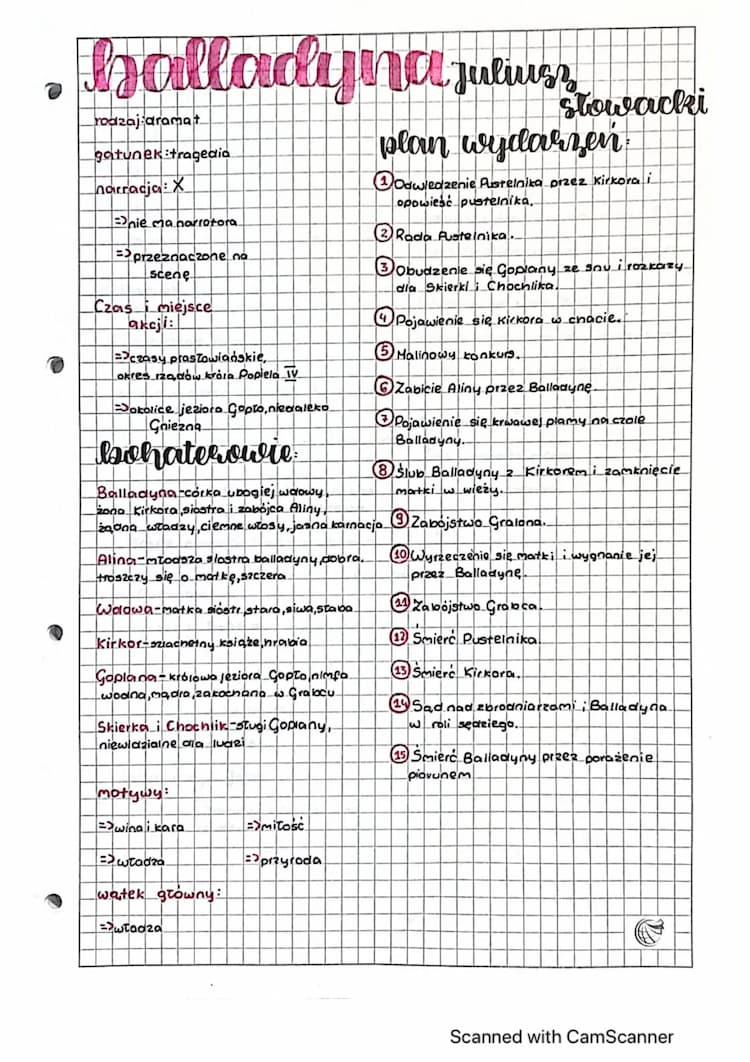 balladyna juliusz
słowacki
rodzaj:dramat
gatunek:tragedia
narracja: X
=>nie ma narratora
=>przeznaczone na
scenę
Czas i miejsce
akcji:
=>czasy prasłowiańskie,
okres rządów króla Popiela IV
=>okolice jeziora Gopło,niedaleko
Gniezna
bohaterowie:
Balladyna-córka ubogiej wdowy,
żona Kirkora,siostra i zabójca Aliny,
żądna władzy,ciemne włosy,jasna karnacja
Alina-młodsza siostra balladyny,dobra,
troszczy się o matkę,szczera
Wdowa-matka sióstr,stara,siwa,słaba
Kirkor-szlachetny książe,hrabia
Goplana-królowa jeziora Gopło,nimfa
wodna,mądra,zakochana w Grabcu
Skierka i Chochlik-sługi Goplany,
niewidzialne dla ludzi
motywy:
=>wina i kara =>miłość
=>władza =>przyroda
wątek główny:
=>władza
plan wydarzeń:
1 Odwiedzenie Pustelnika przez Kirkora i
opowieść pustelnika.
2 Rada Pustelnika.
3 Obudzenie się Goplany ze snu i rozkazy
dla Skierki i Chochlika.
4 Pojawienie się Kirkora w chacie.
5 Malinowy konkurs.
6 Zabicie Aliny przez Balladynę
7 Pojawienie się krwawej plamy na czole
Balladyny.
8 Ślub Balladyny z Kirkorem i zamknięcie
matki w wieży.
9 Zabójstwo Gralona.
10 Wyrzeczenie się matki i wygnanie jej
przez Balladynę.
11 Zabójstwo Grabca.
12 Śmierć Pustelnika
13 Śmierć Kirkora.
14 Sąd nad zbrodniarzami i Balladyna
w roli sędziego.
15 Śmierć Balladyny przez porażenie
piorunem
Scanned with CamScanner